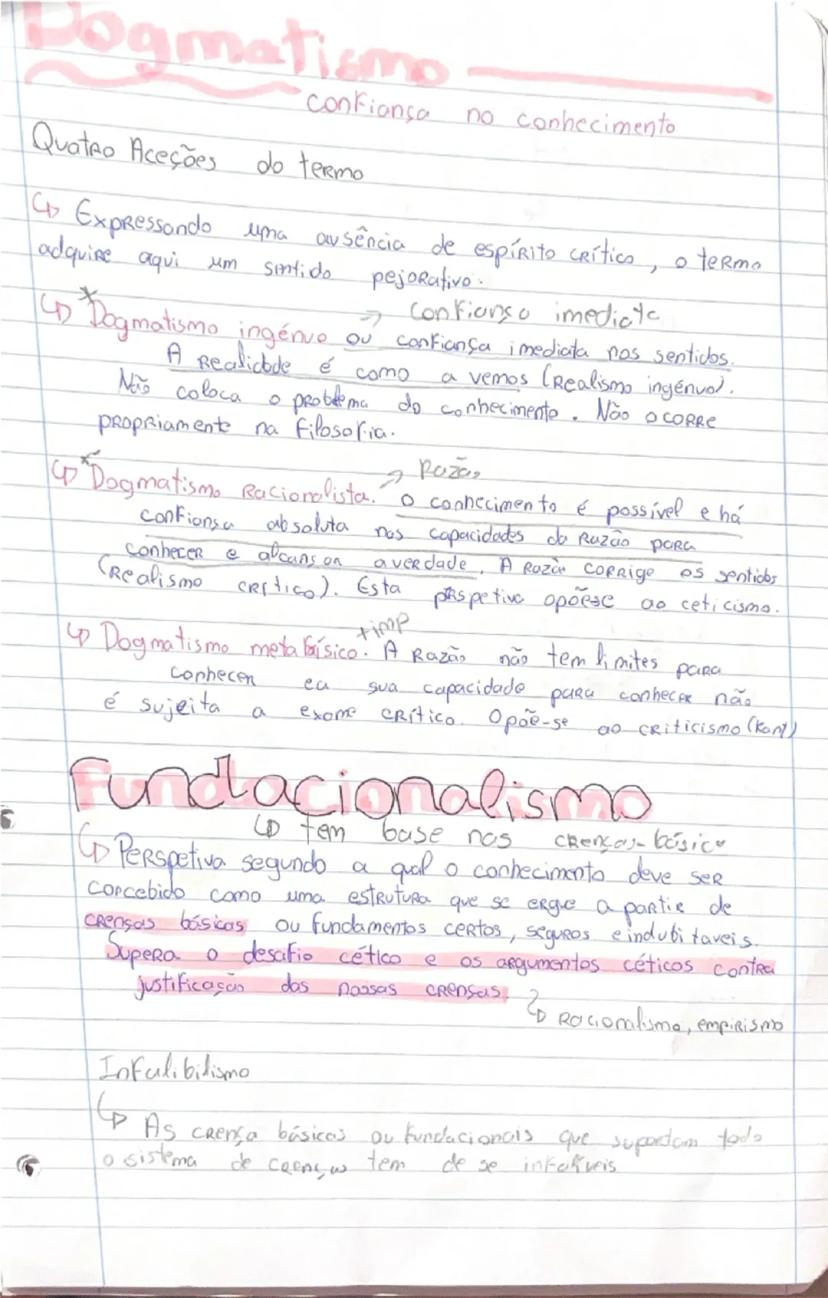 Dogmatismo
confiança no conhecimento
Quatro Aceções do termo
↳ Expressando uma ausência de espírito crítico, o termo
adquire aqui um sentido pejorativo.
→ confiança imediata
↳ *Dogmatismo ingénuo ou confiança imediata nos sentidos.
A Realidade é como a vemos (Realismo ingénuo).
Não coloca o problema do conhecimento. Não ocorre
propriamente na filosofia.
→ Razão
↳ *Dogmatismo Racionalista. O conhecimento é possível e há
confiança absoluta nas capacidades da Razão para
conhecer e alcansar averdade. A Razão corrige os sentidos
(Realismo crítico). Esta perspetiva opõese ao ceticismo.
+imp
↳ Dogmatismo metafísico. A Razão não tem limites para
conhecer ea sua capacidade para conhecer não
é sujeita a exame crítico. Opõe-se ao criticismo (Kant)
Fundacionalismo
↳ tem base nas crenças-básica
↳ Perspetiva segundo a qual o conhecimento deve ser
concebido como uma estrutura que se ergue a partir de
crensas básicas ou fundamentos certos, seguros e indubitaveis.
Supera o desafio cético e os argumentos céticos contra
justificação das nossas crensas.
↳ Racionalismo, empirismo
Infalibilismo
↳ As crença básicas ou fundacionais que suportam todo
o sistema de crenças tem de se infalíveis